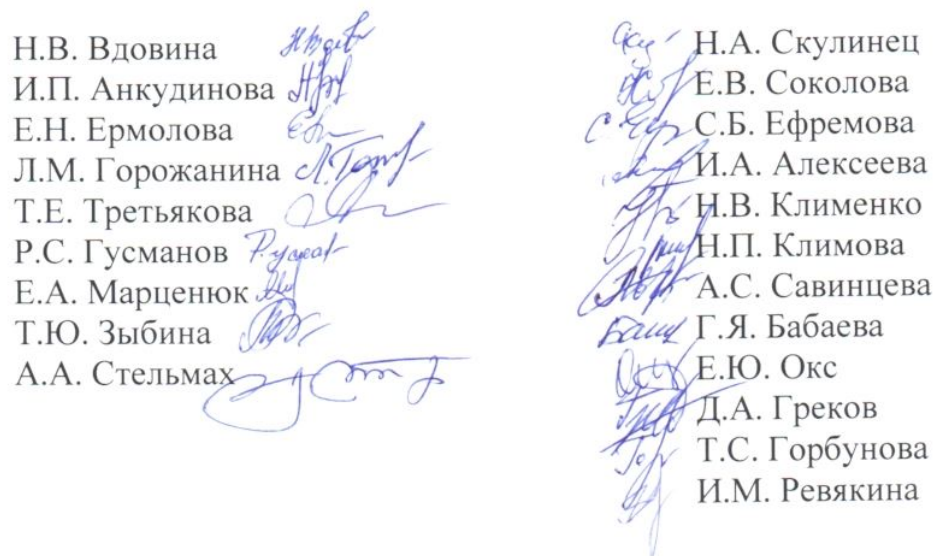 Н.В. Вдовина
И.П. Анкудинова
Е.Н. Ермолова
Л.М. Горожанина
Т.Е. Третьякова
Р.С. Гусманов
Е.А. Марценюк
Т.Ю. Зыбина
А.А. Стельмах
Н.А. Скулинец
Е.В. Соколова
С.Б. Ефремова
И.А. Алексеева
Н.В. Клименко
Н.П. Климова
А.С. Савинцева
Г.Я. Бабаева
Е.Ю. Окс
Д.А. Греков
Т.С. Горбунова
И.М. Ревякина